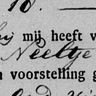 10.
hij mij heeft v
Neeltje
n voorstelling g